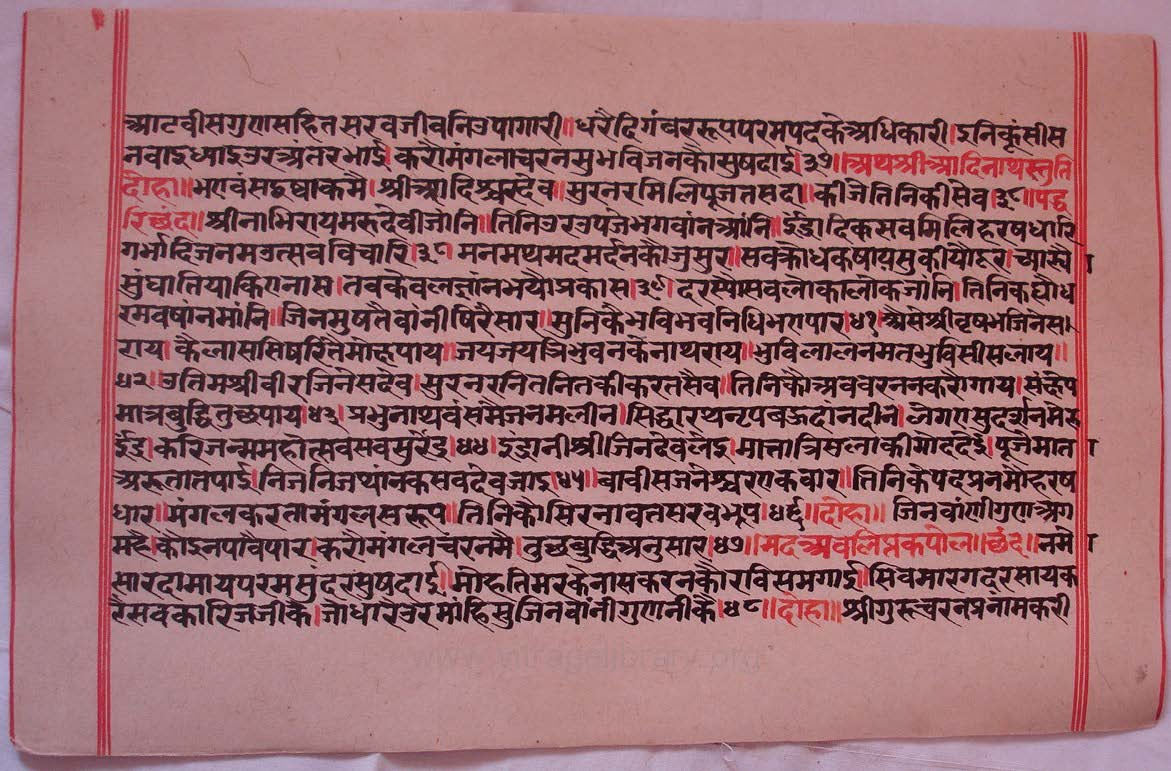 आठवीसगुणसहितसरवजीवनिउपागारी॥धरैदिगंवररूपपरमपदकेअधिकारी।इनिकूंसीस
नवाइध्याइउरअंतरभाई।करौंमंगलाचरनसुभविजनकौसुषदाई।३७॥अथश्रीआदिनाथस्तुति
दोहा॥भगवंसद्वषाकमै।श्रीआदिश्वरदेव॥सुरनरमिलिपूजतसदा॥कीजैतिनिकीसेव।३८॥पद्ध
रिछंद॥श्रीनाभिरायमरुदेवीजांनि॥तिनिउरउपजेभगवांनआंनि॥ईद्रादिकसवमिलिहरषधारि
गर्भादिजनमउत्सवविचारि।३९मनमथमदमर्दनकौजुसुर॥सवक्रोधकषायसुकीयौदूर।
सुंघातियाकिएनास।तवकेवलज्ञांनभयौप्रकास।दरस्यौसवलोकालोकजांनि।तिनिकह्यौध
रमवषांनमांनि॥जिनमुषतैवांनीषिरैसार॥मुनिकैभविभवनिधिभएपार।४१।अैसेश्रीवृषभजिनेसा
राय।कैलाससिषरि॥जयजयत्रिभुवनकेनाथराय॥भुविलालनंमतभुविसीसलाय॥
४२॥श्रीवीरजिनेसदेव।सुरनरनितनितकीकरतसेव॥तिनिकौअववरननकरौंगाय।संछेप
मात्रबुद्धितुछपाय।४३।प्रभुनाथवंसमैजनमलीन।सिद्धारथनृपबहुदांनदीन।सुदर्शनमेरु
ईद्र।करिजन्ममहोत्सवसवसुरेंद्र।४४।इंद्रानीश्रीजिनदेवलेइ।मातात्रिसलाकीगोददेई।पूजेमात
अरुतातपाई।निजनिजथांनकसवदेवजाइ।४५।वावीसजनेश्वरएकवार॥तिनिकेपदप्रनमौंहरष
धार॥मंगलकरतामंगलसरूप॥तिनिकौसिरनावतसरवभूप।४६।दोहा॥जिनवांणीगुणअग
महै।कोइनपावैपार।करौंमंगलचरनमै।तुछबुद्धिअनुसार।४७॥मदअवलिप्तकपोल॥छंद॥नमो
सारदामायपरमसुंदरसुषदाई॥मोहतिमरकेनासकरनकौरविसमगाई॥सिवमारगदरसायक
रैसवकारिजजीकै।जोधारेउरमांहिसुजिनवांनीगुणनीकै।४८॥दोहा॥श्रीगुरुचरनप्रनांमकरी
www.vitragelibrary.org